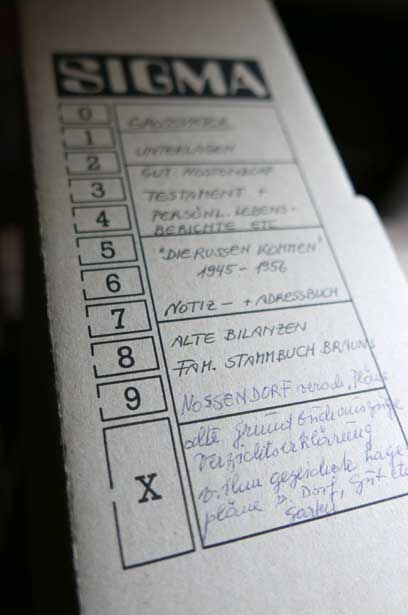 SIGMA
0
1 UNTERLAGEN
2 GUT NOSSENDORF
3 TESTAMENT +
4 PERSÖNL. LEBENS-
BERICHTE ETC
5 "DIE RUSSEN KOMMEN"
6 1945 - 1956
7 NOTIZ - + ADRESSBUCH
8 ALTE BILANZEN
FAM. STAMMBUCH BRAUNS
9 NOSSENDORF versch. Pläne
alte Grundbuchauszüge
Verzichtserklärung
X v. ihm gezeichnete Lage
pläne v. Dorf, Gut etc
Garten